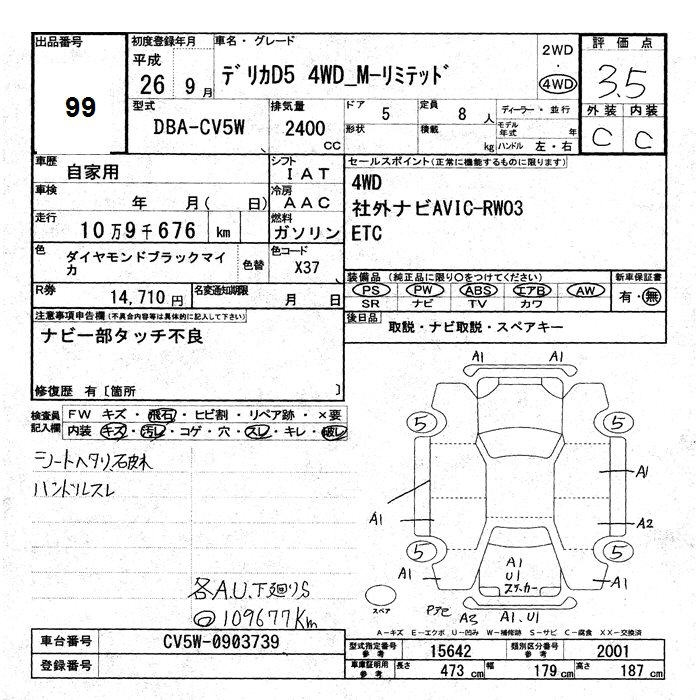 出品番号
99
初度登録年月
平成
26 9月
車名・グレード
デリカD5 4WD_M-リミテッド
2WD
・
4WD
評価点
3.5
外装 内装
C C
型式
DBA-CV5W
排気量
2400
CC
ドア
5
定員
8 人
形状
積載
kg
ディーラー・並行
モデル年式 年
ハンドル 左・右
車歴
自家用
シフト
IAT
車検
年 月( 日)
冷房
AAC
走行
10万9千676 km
燃料
ガソリン
色
ダイヤモンドブラックマイカ
色替
色コード
X37
R券
14,710円
名変通知期限
月 日
セールスポイント(正常に機能するものに限ります)
4WD
社外ナビAVIC-RW03
ETC
装備品 (純正品に限り○をつけてください)
PS PW ABS エアB AW
SR ナビ TV カワ
新車保証書
有・無
後日品
取説・ナビ取説・スペアキー
注意事項申告欄(不具合内容等は具体的に記入して下さい)
ナビ一部タッチ不良
修復歴 有〔箇所 〕
検査員記入欄
FW キズ・飛石・ヒビ割・リペア跡・×要
内装 キズ・汚レ・コゲ・穴・スレ・キレ・破レ
シートヘタリ、破れ
ハンドルスレ
各A.U.下廻りS
◎109677Km
A1 A1
5 5
A1
A1 A2
5 5
A1 A1
A1
U1
ステッカー
スペア
A3 A1.U1
A-キズ E-エクボ U-凹み W-補修跡 S-サビ C-腐食 XX-交換済
車台番号
CV5W-0903739
登録番号
型式指定番号 参考
15642
類別区分番号 参考
2001
車庫証明用 参考
長さ 473 cm 幅 179 cm 高さ 187 cm